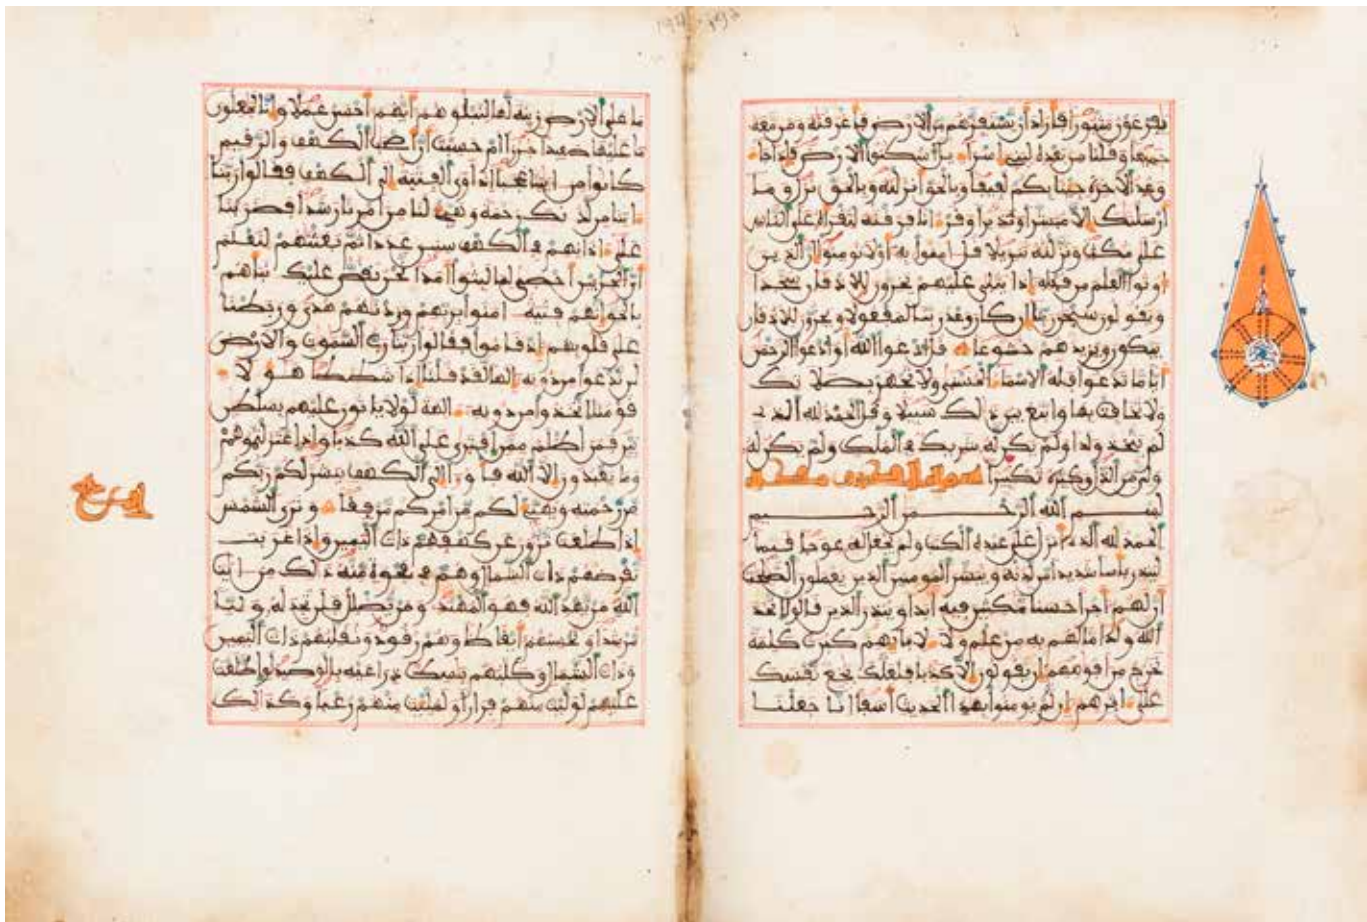 يفرعون مثبورا فأراد أن يستفزهم من الأرض فأغرقنه ومن معه
جميعا وقلنا من بعده لبني إسراءيل اسكنوا الأرض فإذا جا
وعد الأخرة جئنا بكم لفيفا وبالحق أنزلنه وبالحق نزل وما
أرسلنك إلا مبشرا ونذيرا وقرءانا فرقنه لتقرأه على الناس
على مكث ونزلنه تنزيلا قل امنوا به أو لا تومنوا إن الذين
أوتوا العلم من قبله إذا يتلى عليهم يخرون للأذقان سجدا
ويقولون سبحن ربنا إن كان وعد ربنا لمفعولا ويخرون للأذقان
يبكون ويزيدهم خشوعا قل ادعوا الله أو ادعوا الرحمن
أيا ما تدعوا فله الأسماء الحسنى ولا تجهر بصلاتك
ولا تخافت بها وابتغ بين ذلك سبيلا وقل الحمد لله الذي
لم يتخذ ولدا ولم يكن له شريك في الملك ولم يكن له
ولي من الذل وكبره تكبيرا سورة الكهف مكية
بسم الله الرحمن الرحيم
الحمد لله الذي أنزل على عبده الكتب ولم يجعل له عوجا قيما
لينذر بأسا شديدا من لدنه ويبشر المومنين الذين يعملون الصلحت
أن لهم أجرا حسنا مكثين فيه أبدا وينذر الذين قالوا اتخذ
الله ولدا ما لهم به من علم ولا لأبايهم كبرت كلمة
تخرج من أفوههم إن يقولون إلا كذبا فلعلك بخع نفسك
على ءاثرهم إن لم يومنوا بهذا الحديث أسفا إنا جعلنا
ما على الأرض زينة لها لنبلوهم أيهم أحسن عملا وإنا لجعلون
ما عليها صعيدا جرزا أم حسبت أن أصحب الكهف والرقيم
كانوا من ءايتنا عجبا إذ أوى الفتية إلى الكهف فقالوا ربنا
ءاتنا من لدنك رحمة وهيئ لنا من أمرنا رشدا فضربنا
على ءاذانهم في الكهف سنين عددا ثم بعثنهم لنعلم
أي الحزبين أحصى لما لبثوا أمدا نحن نقص عليك نبأهم
بالحق إنهم فتية ءامنوا بربهم وزدنهم هدى وربطنا
على قلوبهم إذ قاموا فقالوا ربنا رب السموت والأرض
لن ندعوا من دونه إلها لقد قلنا إذا شططا هؤلاء
قومنا اتخذوا من دونه ءالهة لولا ياتون عليهم بسلطن
بين فمن أظلم ممن افترى على الله كذبا وإذ اعتزلتموهم
وما يعبدون إلا الله فأووا إلى الكهف ينشر لكم ربكم
من رحمته ويهيئ لكم من أمركم مرفقا وترى الشمس
إذا طلعت تزور عن كهفهم ذات اليمين وإذا غربت
تقرضهم ذات الشمال وهم في فجوة منه ذلك من ءايت
الله من يهد الله فهو المهتد ومن يضلل فلن تجد له وليا
مرشدا وتحسبهم أيقاظا وهم رقود ونقلبهم ذات اليمين
وذات الشمال وكلبهم بسط ذراعيه بالوصيد لو اطلعت
عليهم لوليت منهم فرارا ولملئت منهم رعبا وكذلك
ربع